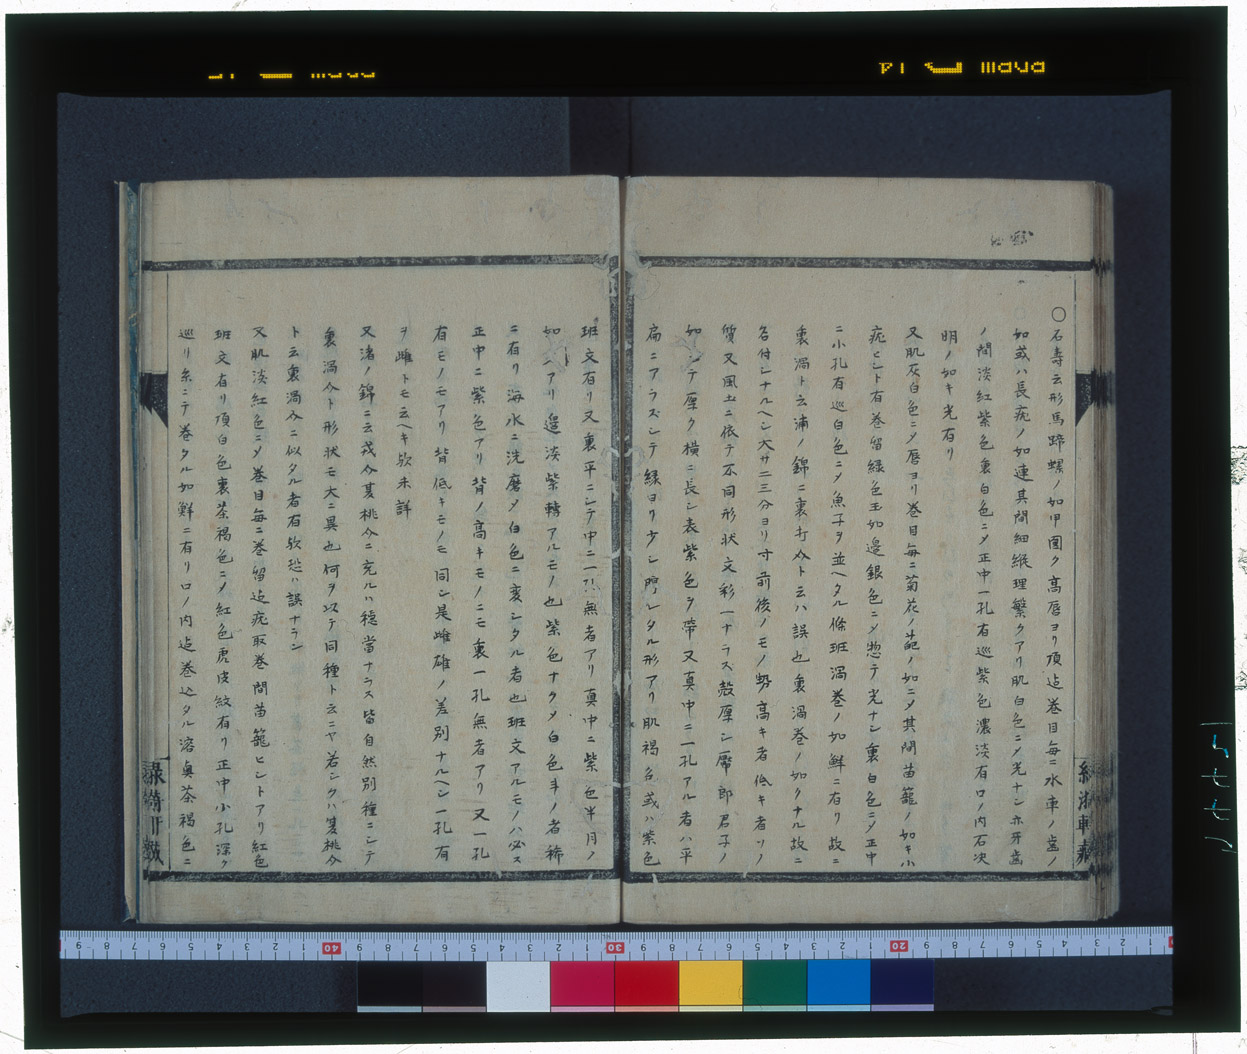 ○石寿云形馬蹄螺ノ如甲円ク高唇ヨリ頂迄巻目毎ニ水車ノ歯ノ
如或ハ長疣ノ如連其間細縦理繁クアリ肌白色ニ〆光ナシ亦牙歯
ノ間淡紅紫色裏白色ニ〆正中一孔有巡紫色濃淡有口ノ内石决
明ノ如キ光有リ
又肌灰白色ニ〆唇ヨリ巻目毎ニ菊花ノ葩ノ如ニ〆其間苗籠ノ如キ小
疣ヒシト有巻留緑色玉如邉銀色ニ〆惣テ光ナシ裏白色ニ〆正中
ニ小孔有巡白色ニ〆魚子ヲ並ヘタル條班渦巻ノ如鮮ニ有リ故ニ
裏渦ト云浦ノ錦ニ裏打介トニハ誤也裏渦巻ノ如クナル故ニ
名付シナルヘシ大サ二三分ヨリ寸前後ノモノ勢高キ者低キ者ソノ
質又風土ニ依テ不同形状文彩一ナラス殻厚シ屬郎君子ノ
如シテ厚ク横ニ長シ表紫色ヲ帯又真中ニ一孔アル者ハ平
扁ニアラズシテ緑ヨリ少シ隆レタル形アリ肌褐色或ハ紫色
班文有リ又裏平ニシテ中ニ一孔無者アリ真中ニ紫色半月ノ
如ヘアリ邉淡紫轉アルモノ也紫色ナク〆白色キノ者稀
ニ有リ海水ニ洗磨〆白色ニ変シタル者也班文アルモノハ必ス
正中ニ紫色アリ背ノ高キモノニモ裏一孔無者アリ又一孔
有モノモアリ背低キモノモ同シ是雌雄ノ差別ナルヘシ一孔有
ヲ雌ト モ云ヘキ欤未詳
又渚ノ錦ニ云或介夏桃介ニ充ルハ穏當ナラス皆自然別種ニシテ
裏渦介ト形状モ大ニ異也何ヲ以テ同種ト云ニヤ若シクハ夏桃介
ト云裏渦介ニ似タル者有欤恐ハ誤ナラン
又肌淡紅色ニ〆巻目毎ニ巻留迄疣取巻間苗籠ヒシトアリ紅色
班文有リ頂白色裏茶褐色ニ〆紅色虎皮紋有リ正中小孔深ク
巡リ糸ニテ巻タル如鮮ニ有リ口ノ内迄巻込タル溶奥茶褐色ニ